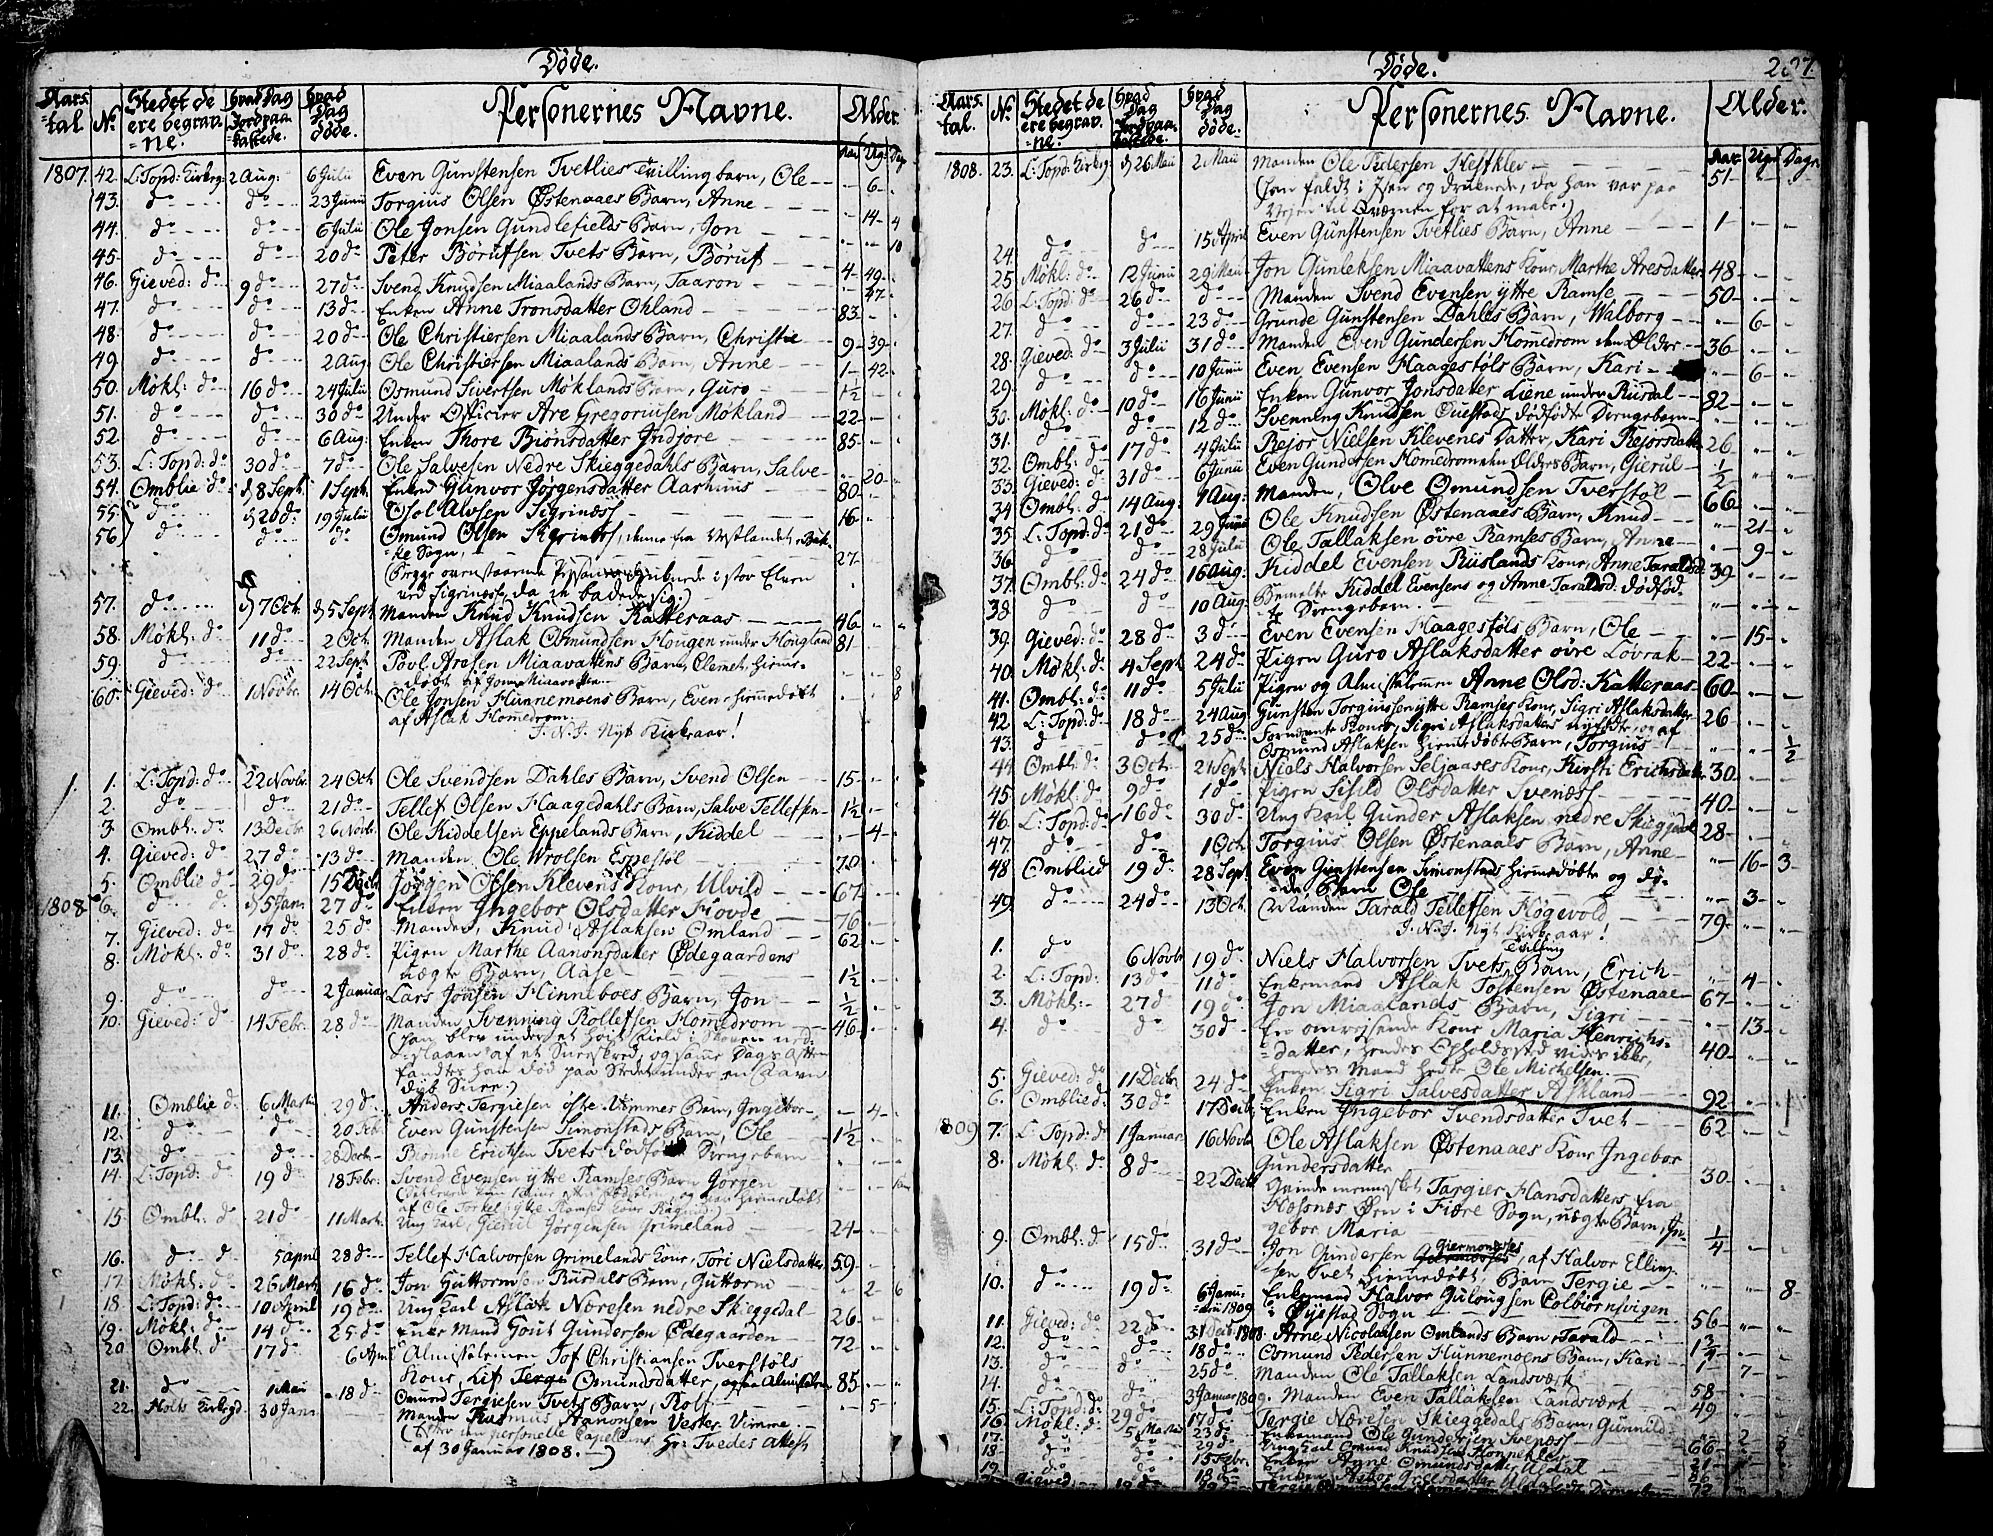 Døde.
Aars-tal No. Stedet de ere begravne. Hvad Dag Jordpaakastede. Hvad Dag døde. Personernes Navne. Alder
Aar Uger Dage
1807. 42. L: Topd: Kirkeg: 2 Aug: 6 Julii Even Gunstensen Tvetlies Tvillingbarn, Ole - 6 -
43. do do 23 Junii Torgius Olsen Østenaaes Barn, Anne - 14 - 4
44. do do 6 Julii Ole Jonsen Gundlefields Barn, Jon - - 10
45. do do 20 do Peter Børufsen Tvets Barn, Børuf 4 - 49 -
46. Gieved: do 9 do 27 do Svend Knudsen Miaalands Barn, Taaron - 47 -
47. do do 13 do Enken Anne Tronsdatter Okland 83
48. do do 20 do Ole Christiersen Miaalands Barn, Christie 9 - 39
49. do do 2 Aug: Ole Christiersen Miaalands Barn, Anne 1 - 42
50. Møkl: do 16 do 24 Julii Osmund Sivertsen Møklands Barn, Guro 1½
51. do do 30 do Under Officier Are Gregoriusen Møkland 22
52. do do 6 Aug: Enken Thore Biønsdatter Indjore 85
53. L: Topd: do 30 do 7 do Ole Salvesen Nedre Skieggedahls Barn, Salve - 20
54. Omblie do d 8 Sept. 1 Sept. Enken Gunvor Jørgensdatter Aarhuus 80
55. do d 20 do 19 Julii Osol Alvsen Sigrinæss 16
56. do do do Omund Olsen Sigrinæss, denne fra Vestlandet
ke Sogn, 27
(Begge ovenstaaende Personer druknede i stor Elven
ved Sigrinæss, da de badede sig.)
57. do d 7 Oct. d 5 Sept. Manden Knud Knudsen Katteraas 46
58. Møkl: do 11 do 2 Oct. Manden Aslak Osmundsen Hougen under Hougland 81
59. do do 22 Sept. Povl Aresen Miaavattens Barn, Clemet, hiemmedøbt af Jon Miaavatten 8
60. Gieved: do 1 Novbr. 14 Oct. Ole Jonsen Hunnemoens Barn, Even, hiemmedøbt 8
af Aslak Homedrom.
I. N. J. Nyt Kirkeaar!
1. L: Topd: do 22 Novbr. 24 Oct. Ole Svendsen Dahles Barn, Svend Olsen 15
2. do do 21 do Tellef Olsen Haagedahls Barn, Salve Tellefsen 1½
3. Ombl: do 13 Decbr. 26 Novb. Ole Kiddelsen Eppelands Barn, Kiddel - 4
4. Gieved: do 27 do 13 do Manden Ole Wrolsen Espestøl 70
5. Omblie do 29 do 15 Decbr. Jørgen Olsen Klevens Kone, Ulvild 67
1808. 6. do do d 5 Jan: 27 do Enken Ingebor Olsdatter Hovde 76
7. Gieved: do 17 do 25 do Manden, Knud Aslaksen Omland 62
8. Møkl: do 31 do 28 do Pigen Marthe Aanonsdatter Ødegaardens
uægte Barn, Aase 1½
9. do do 2 Januar. Lars Jonsen Hinneboes Barn, Jon ½
10. Gieved: do 14 Febr. 28 do Manden Svenning Rollefsen Homedrom 46
(han blev under et høit Field i Skoven nedslaaen af et Sneeskred, og samme Dags Aften
fandtes han død paa Stedet under en Favn
dyb Snee.)
11. Omblie do 6 Martii 29 do Anders Tergiesen øfre Vimmes Barn, Ingebor - 4
12. do do 20 Feb. Even Gunstensen Simonstads Barn, Ole 1½
13. do do 28 Decb. Bionne Erichsen Tvets dødfødt Drengebarn
14. L: Topd: do 19 do 18 Febr. Svend Evensen ytre Ramses Barn Jørgen
15. Ombl: do 21 do 11 Mart. Ung Karl, Gierul Jørgensen Grimeland 24
16. do 5 April 28 do Tellef Halvorsen Grimelands Kone, Tori Nielsdatter 59
17. Møkl: do 26 Mart. 16 do Jon Guttormsen Rusdals Barn, Guttorm - 2 - 6
18. L: Topd: do 10 April 19 do Ung Karl Aslak Næresen nedre Skieggedal 26
19. Møkl: do 14 do 25 do Enke Mand Gout Gundersen Ødegaarden 72
20 Ombl: do 17 do 6 April Almisselemen Tof Christiansen Tverstøls
Kone, Lif Omundsdatter, ogsaa Almisselem 85
21. do 1 Mai 18 do Omund Tergiesen Tvets Barn, Rolf - 5
22. Holts Kirkegd 30 Janr. Manden Rasmus Aanonsen Vestre Vimme
(Efter den personelle Capellans Hr: Tvedes Attest
af 30 Januar 1808.)
Døde. 287.
Aars-tal. No. Stedet de ere begravne. Hvad Dag Jordpaakastede. Hvad Dag døde. Personernes Navne. Alder.
Aar. Uger Dage
1808. 23. L: Topd: Kirkeg: d 26 Maii 2 Maii Manden Ole Pedersen Hestklev 51
(han faldt i Isen og druknede, da han var paa
Vejen til Qværnen for at male.)
24. do do 15 April Even Gunstensen Tvetlies Barn, Anne 1
25 Møkl: do 12 Junii 29 Maii Jon Gunleksen Miaavattens Kone, Marthe Aresdatter 48
26 L: Topd: do 26 do do Manden Svend Evensen ytre Ramse 50
27. do do 23 do Grunde Gunstensen Dahles Barn, Walborg - 6
28. Gieved: do 3 Julii 31 do Manden Even Gundersen Homedrom den Ælder 36
29. do do 10 Junii Even Evensen Haagestøls Barn, Kari - 6
30. Møkl: do 10 do 16 Junii Enken Gunvor Jonsdatter Liene under Rusdal 82
31. do do 12 do Svenning Knudsen Ouestads dødfødte Drengebarn
32. Ombl: do 17 do 4 Julii Rejor Nielsen Klevenes Datter, Kari Rejorsdatter 26
33. Gieved: do 31 do 6 Junii Even Gundersen Homedrom den Ælders Barn, Gierul ½
34 Ombl: do 14 Aug: 1 Aug: Manden, Olve Omundsen Tverstøl 66
35. L: Topd: do 21 do 29 Junii Ole Knudsen Østenaaes Barn, Knud - 21
36. do do 28 Julii Ole Tallaksen øvre Ramses Barn, Anne - 9
37. Ombl: do 24 do 16 Aug. Kiddel Evensen Ruslands Kone, Anne Taraldsd: 39
38. do do 10 Aug. Bemelte Kiddel Evensens og Anne Taraldsd: dødfødte Drengebarn.
39. Gieved: do 28 do 3 do Even Evensen Haagestøls Barn, Ole - 15
40. Møkl: do 4 Sept. 24 do Pigen Guro Aslaksdatter øvre Løvrak 22
41. Ombl: do 11 do 5 Julii Pigen og Almisselemmen Anne Olsd: Katteraas 60
42. L: Topd: do 18 do 24 Aug Gunsten Torgiussen ytre Ramses Kone, Sigri Aslaksdatter 26
43. do do 25 do Fornævnte Kones, Sigri Aslaksdatters nyfødte, og af
Osmund Aslaksen hiemmedøbte Barn, Torgius ½
44 Ombl: do 3 Oct. 21 Sept. Niels Halvorsen Seljaases Kone, Kirsti Erichsdatter 30
45. Møkl: do 9 do 1 do Pigen Sisild Olsdatter Svenæss 40
46. L: Topd: do 16 do 30 do Ung Karl Gunder Aslaksen nedre Skieggedal 28
47 do do 1 Oct. Torgius Olsen Østenaaes Barn, Anne - 16 - 3
48 Omblied 19 do 28 Sept. Even Gunstensen Simonstads hiemmedøbte og døde Barn Ole - 3
49. do 24 do 13 Oct. Manden Tarald Tellefsen Høgevold 79
I. N. J. Nyt Kirkeaar!
1. do 6 Novbr 19 do Niels Halvorsen Tvets Tvilling Barn, Erich - 4
2. L: Topd: 13 do 11 do Enkemand Aslak Tostensen Østenaae 67
3. Møkl: 27 do 19 do Jon Miaalands Barn, Sigri - 13
4. do do 30 do En omrejsende Kone Maria Henrichsdatter, hendes Opholdssted vides ikke, 40
hendes Mand hedte Ole Michelsen.
5. Gieved: do 11 Decbr 24 do Enken Sigri Salvesdatter Askland 92
6. Omblie d: 30 do 17 Decb. Enken Ingebor Svendsdatter Tvet 62
1809 7. L: Topd: do 1 Januar. 16 Novbr Ole Aslaksen Østenaaes Kone Ingebor
Gundersdatter 30
8. Møkl: do 8 do 22 Decbr Qvindemennesket Targier Hansdatters fra
Hæsnæs Øen i Fiære Sogn, uægte Barn, Ingebor Maria ¼
9. Ombl: do 15 do 31 do Jon Gundersen Giermondnes, af Halvor Ellingsen Tvet hiemmedøbt Barn Tergie 8
10. do 19 do 6 Januarii 1809 Enkemand Halvor Gulougsen Colbiørnsvigen
i Øyestad Sogn 56
11. Gieved: do 22 do 31 Decb. 1808. Arne Nicolaisen Omlands Barn, Tarald
12. do do 18 do Osmund Pedersen Hunnemoens Barn, Kari 1 - 7
13. do do 25 do Manden Ole Tallaksen Landsværk 58
14. do do 3 Januar 1809. Manden Even Tallaksen Landsværk 49
15. L: Topd: do 29 do 17 do Tergie Næresen Skieggedals Barn, Gunnild - 2
16. Møkl: do 5 Martii 23 do Enkemand Ole Gundersen Svenæss 66
17. do do 29 do Ung Karl Omund Knudsen 21
18. do do 15 Febr. Enken Anne Omundsdatter Ufsdal 86
19. do do 18 do Enken
Gieved